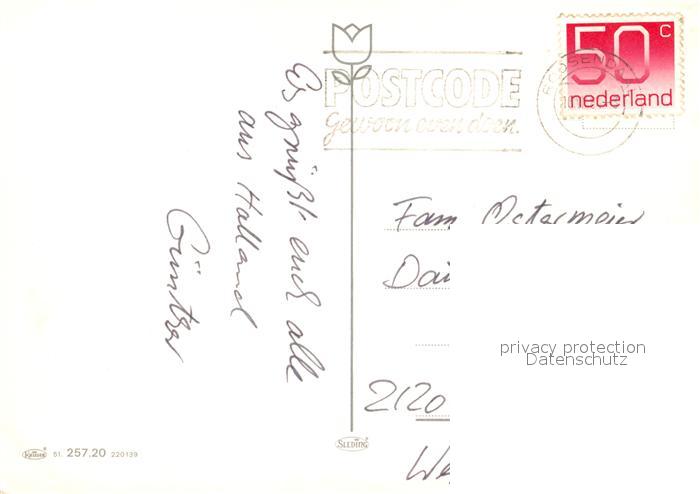 Es grüßt euch alle
aus Holland
Günther
POSTCODE
Gewoon even doen.
ROOSENDA
50 C
nederland
Fam
Dai
privacy protection
Datenschutz
2120
We
SLEDING
Kruger 51. 257.20 220139